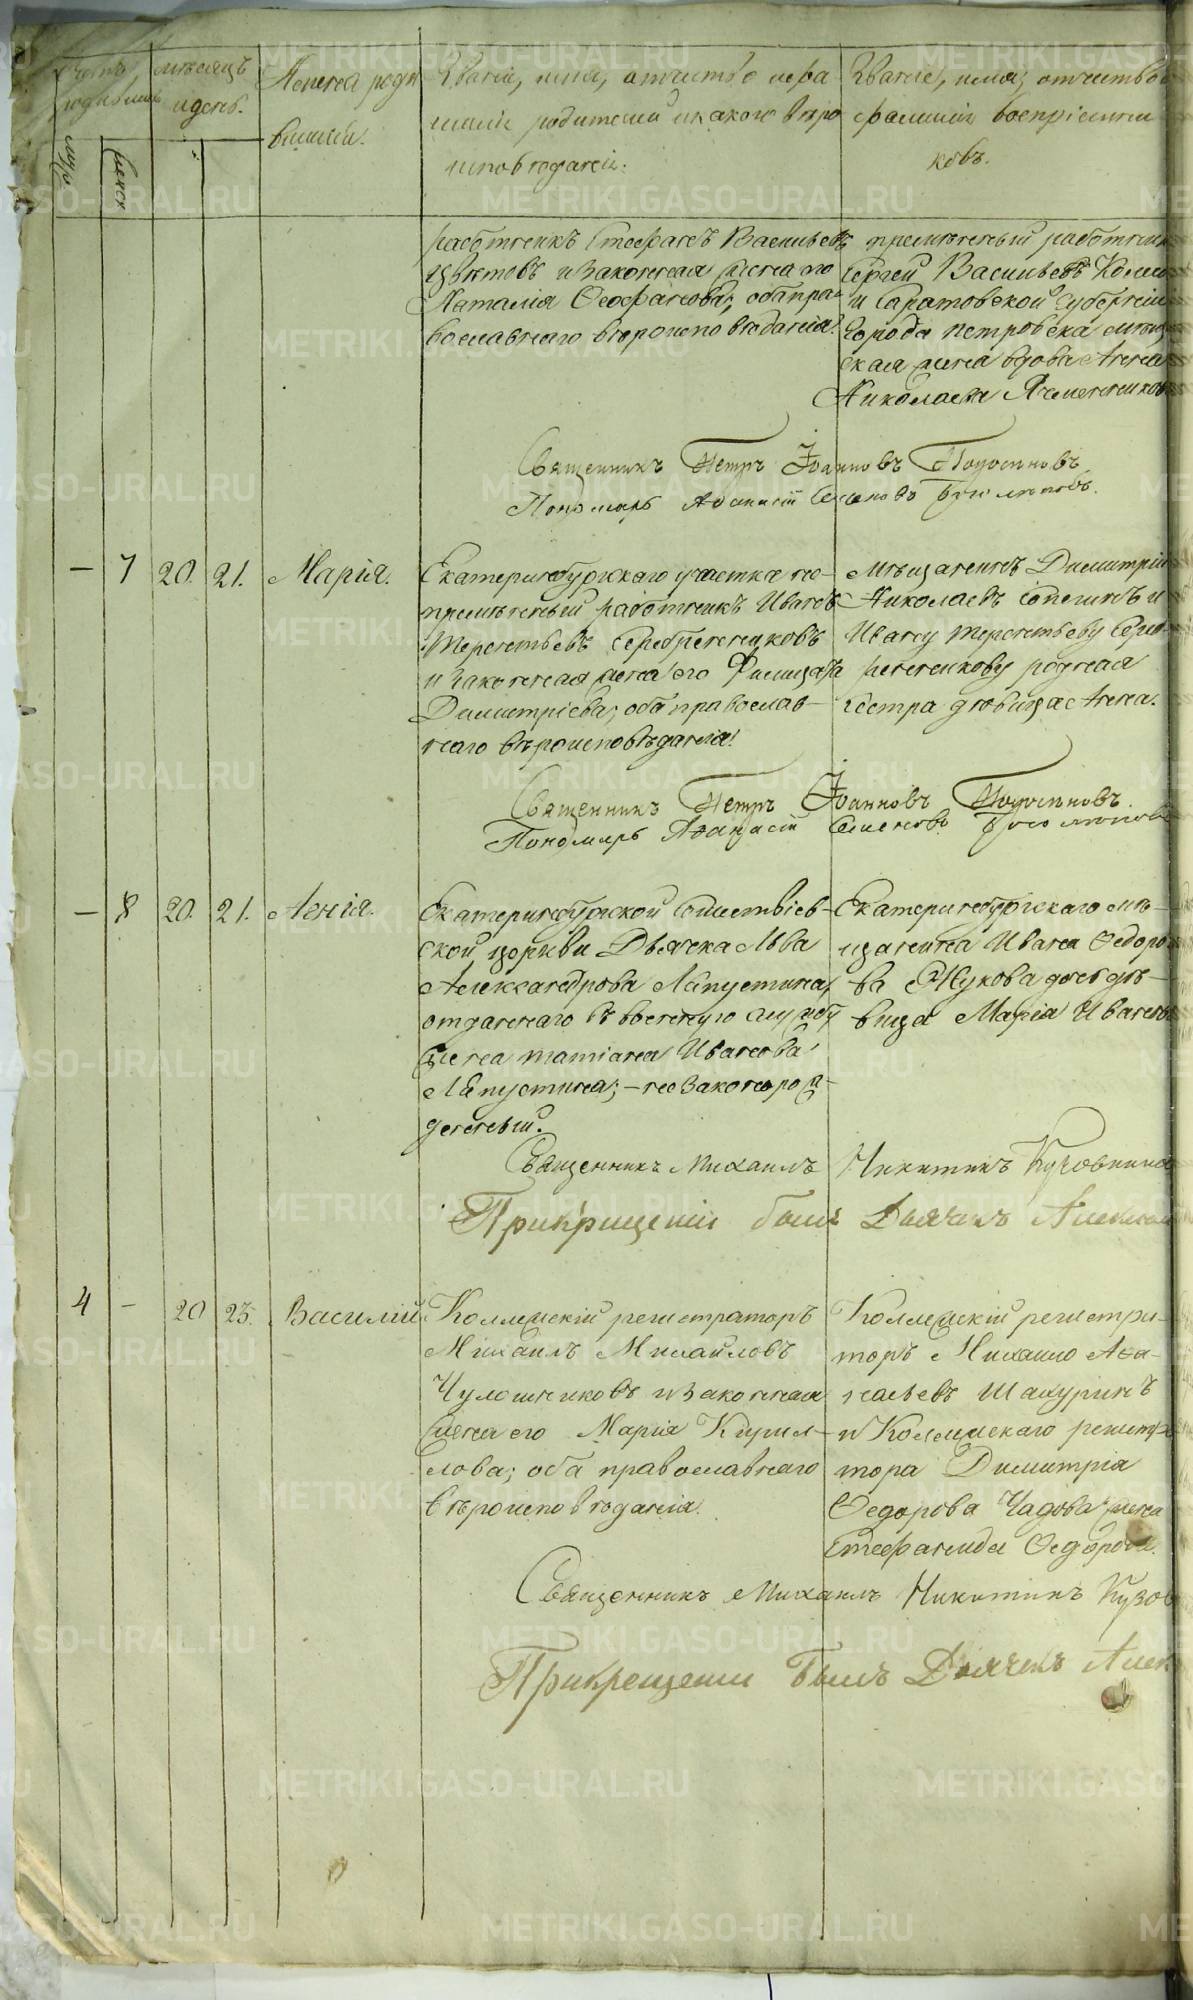 Счетъ родившихся
мѣсяцъ и день.
Имена родившихся.
Званіе, имя, отчество и фамилія родителей и какого вѣроисповѣданія.
Званіе, имя, отчество и фамилія воспріемниковъ.
муж.
женск
работникъ Стефанъ Васильевъ
Цвѣтовъ и законная жена его
Наталія Ѳеофанова; оба пра-
вославнаго вѣроисповѣданія.
премѣнный работникъ
Сергей Васильевъ
и Саратовской Губерніи
города Петровска мѣщан
ская жена вдова Анна
Николаева
Священникъ Петръ Іоанновъ
Пономарь Аѳанасій Семеновъ
— 7 20. 21. Марія.
Екатеринбургскаго участка не-
премѣнный работникъ Иванъ
Терентьевъ Серебренниковъ
и законная жена его Филицата
Димитріева; оба православ-
наго вѣроисповѣданія.
Мѣщанинъ Димитрій
Николаевъ и
Ивану Терентьеву Сереб-
ренникову родная
сестра дѣвица Анна.
Священникъ Петръ Іоанновъ
Пономарь Аѳанасій Семеновъ
— 8 20. 21. Агнія.
Екатеринбургской Сошествіев-
ской церкви Дьячка Льва
Александрова Лапустина,
отданнаго въ военную службу
жена Татіана Иванова
Лапустина; — незаконорож-
денный.
Екатеринбургскаго мѣ-
щанина Ивана Ѳедоро
ва Жукова дочь дѣ-
вица Марія Иванов
Священникъ Михаилъ Никитинъ
Прикрещеніи былъ Дьячекъ
4 — 20 23. Василій
Коллежскій регистраторъ
Михаилъ Михайловъ
Чулошниковъ и законная
жена его Марія Кирил-
лова; оба православнаго
вѣроисповѣданія.
Коллежскій регистра-
торъ Михаило Аѳа-
насьевъ Шахуринъ
и Коллежскаго регистра
тора Димитрія
Ѳедорова Чадова жена
Стефанида Ѳедорова.
Священникъ Михаилъ Никитинъ
Прикрещеніи былъ Дьячекъ
METRIKI.GASO-URAL.RU